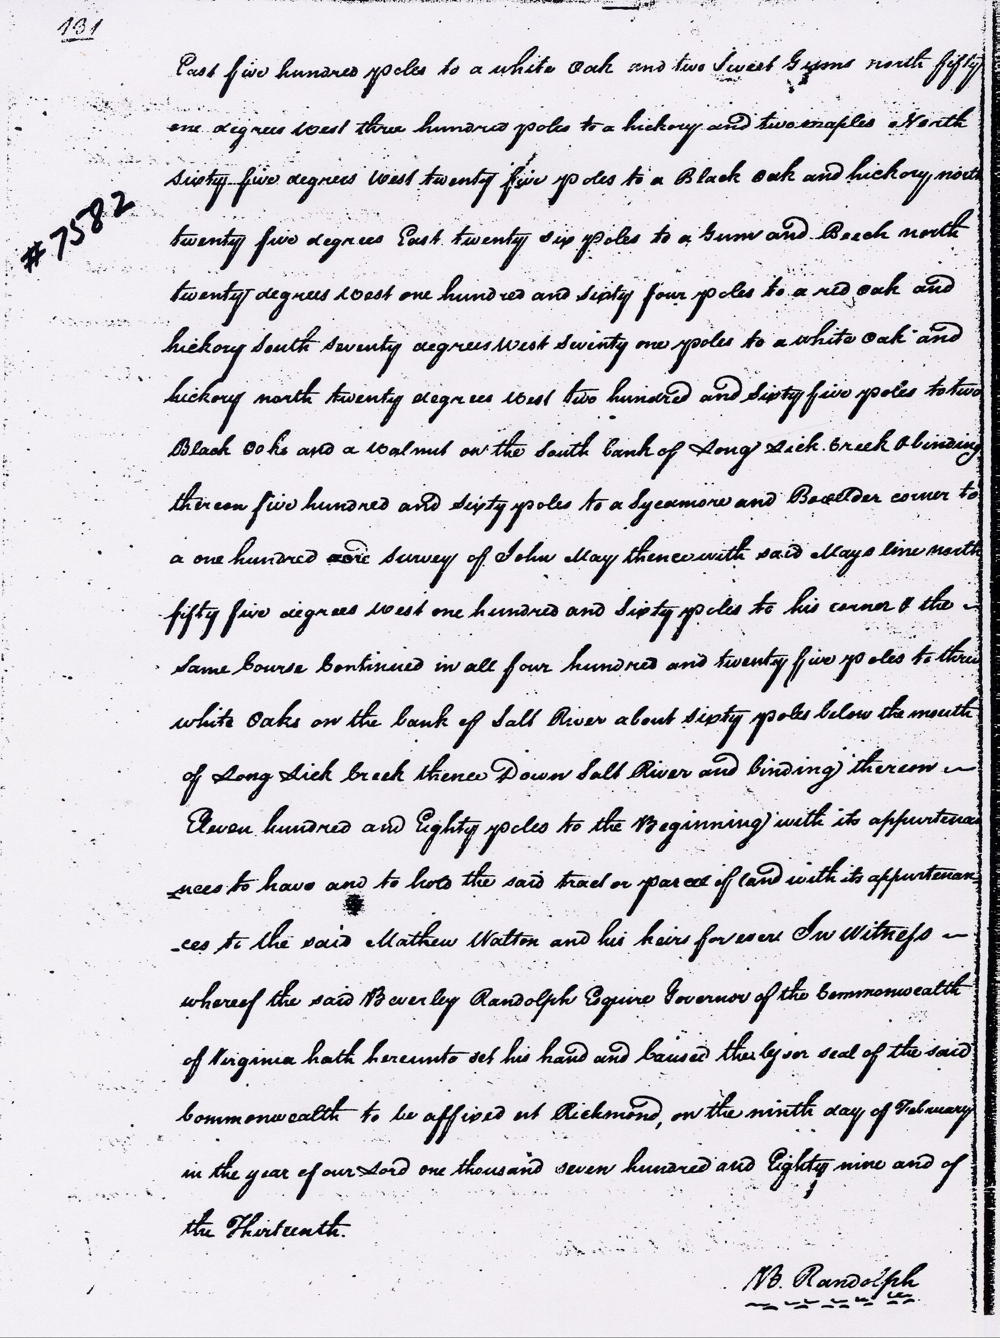 131
East five hundred poles to a white Oak and two Sweet Gums north fifty
one degrees West three hundred poles to a hickory and two maples North
sixty five degrees West twenty five poles to a Black Oak and hickory, north
#7582
twenty five degrees East twenty six poles to a Gum and Beech north
twenty degrees West one hundred and sixty four poles to a red Oak and
hickory South Seventy degrees West Seventy one poles to a white Oak and
hickory north twenty degrees West two hundred and Sixty five poles to two
Black Oaks and a Walnut on the South bank of Long Lick Creek & binding
thereon five hundred and sixty poles to a Sycamore and Boxelder corner to
a one hundred acre Survey of John May thence with said Mays line north
fifty five degrees West one hundred and Sixty poles to his corner & the
Same Course Continued in all four hundred and twenty five poles to three
white Oaks on the bank of Salt River about sixty poles below the mouth
of Long Lick Creek thence Down Salt River and binding thereon
Eleven hundred and Eighty poles to the Beginning with its appurtena
nces to have and to hold the said tract or parcel of land with its appurtenan
ces to the said Mathew Walton and his heirs forever In Witness
whereof the said Beverley Randolph Esquire Governor of the Commonwealth
of Virginia hath hereunto set his hand and Caused the seal of the said
Commonwealth to be affixed at Richmond, on the ninth day of February
in the year of our Lord one thousand seven hundred and Eighty nine and of
the Thirteenth.
B. Randolph